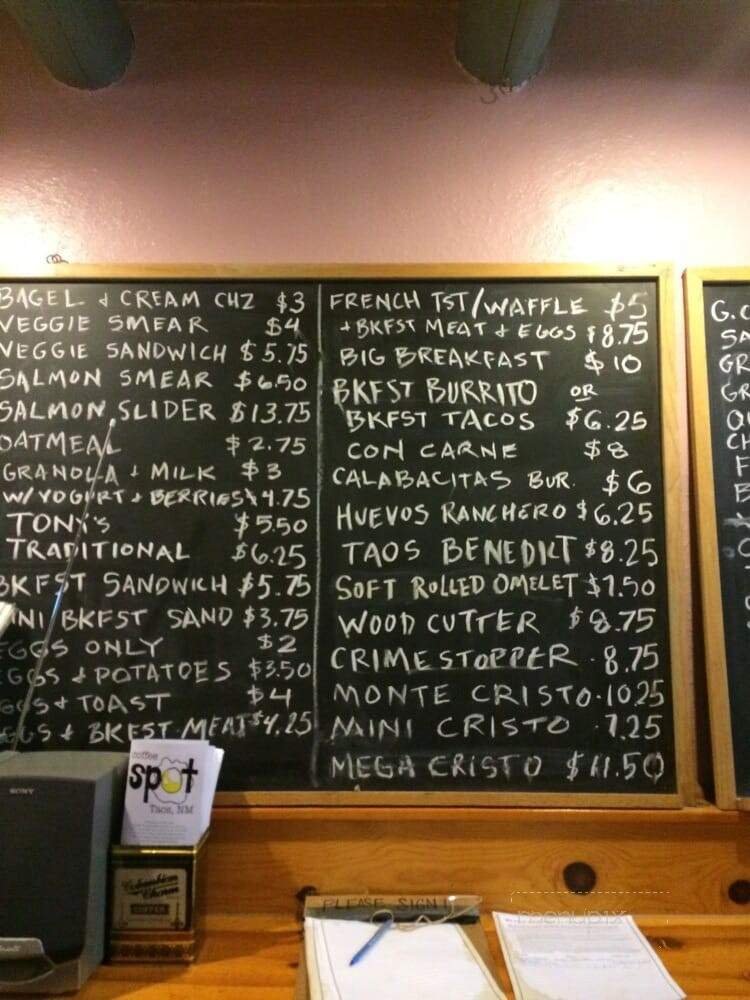 BAGEL & CREAM CHZ $3
VEGGIE SMEAR $4
VEGGIE SANDWICH $5.75
SALMON SMEAR $6.50
SALMON SLIDER $13.75
OATMEAL $2.75
GRANOLA & MILK $3
W/YOGURT & BERRIES $4.75
TONY'S $5.50
TRADITIONAL $6.25
BKFST SANDWICH $5.75
MINI BKFST SAND $3.75
EGGS ONLY $2
EGGS & POTATOES $3.50
EGGS & TOAST $4
EGGS & BKFST MEAT $4.25
FRENCH TST/WAFFLE $5
+ BKFST MEAT & EGGS $8.75
BIG BREAKFAST $10
BKFST BURRITO OR
BKFST TACOS $6.25
CON CARNE $8
CALABACITAS BUR. $6
HUEVOS RANCHERO $6.25
TAOS BENEDICT $8.25
SOFT ROLLED OMELET $7.50
WOOD CUTTER $8.75
CRIMESTOPPER 8.75
MONTE CRISTO 10.25
MINI CRISTO 7.25
MEGA CRISTO $11.50
G.C
SA
GR
SONY
coffee
spot
Taos, NM
Columbian
COFFEE
PLEASE SIGN!
menupix